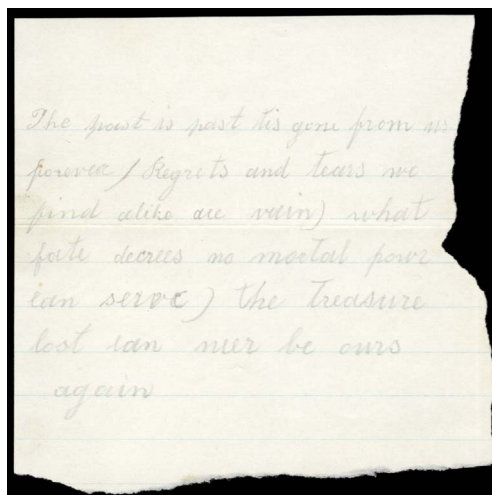 The past is past tis gone from us
forever / Regrets and tears we
find alike are vain) what
fate decrees no mortal powr
can serve ) the treasure
lost can neer be ours
again